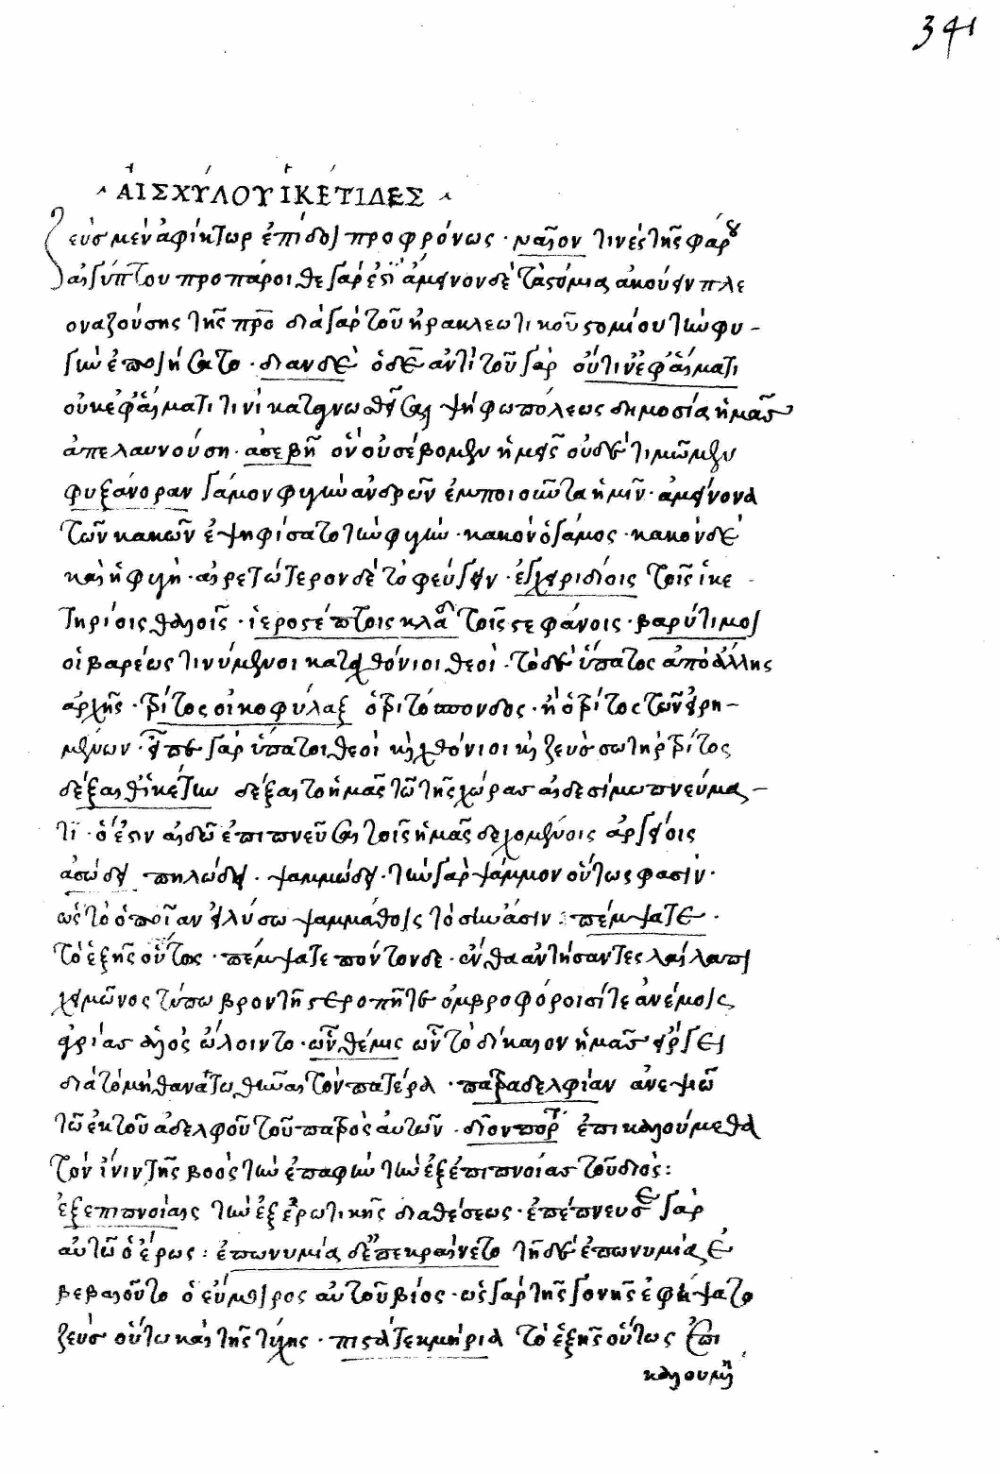 341
ΑΙΣΧΥΛΟΥ ΙΚΕΤΙΔΕΣ
Ζεὺσ μὲν ἀφίκτωρ ἐπίδοι προφρόνως · νάϊον τινὲς τῆς φάρου
αἰγύπτου προπάροιθε γάρ ἐστι ἄμεινον δὲ τὰ στόμια ἀκούειν πλε
οναζούσης τῆς πρὸ διὰ γὰρ τοῦ ἡρακλεωτικοῦ στομίου τὴν φυ-
γὴν ἐποιήσατο · δῖαν δὲ ὁ δὲ ἀντὶ τοῦ γάρ οὔτιν' ἐφ' αἵματι
οὐκ ἐφ' αἵματι τινὶ καταγνωσθεῖσαι ψήφω πόλεως δημοσία ἡμᾶς
ἀπελαυνούση · ἀσεβῆ ὃν οὐ σέβομεν ἡμεῖς οὐδὲ τιμῶμεν
φυξάνοραν γάμον φυγὴν ἀνδρῶν ἐμποιοῦντα ἡμῖν · ἀμείνονα
τῶν κακῶν ἐψηφίσατο τὴν φυγήν · κακὸν ὁ γάμος · κακὸν δὲ
καὶ ἡ φυγή · αἱρετώτερον δὲ τὸ φεύγειν · ἐγχειριδίοις τοῖς ἱκε
τηρίοις θαλοῖς · ἱεροστέπτοις κλά τοῖς στεφάνοις · βαρύτιμοι
οἱ βαρέως τινύμενοι καταχθόνιοι θεοί · τὸ δὲ ὕπατος ἀπὸ ἄλλης
ἀρχῆς · τρίτος οἰκοφύλαξ ὁ τριτόσπονδος · ἢ ὁ τρίτος τῶν εἰρη-
μένων · εἶπε γὰρ ὕπατοι θεοὶ καὶ χθόνιοι καὶ ζεὺς σωτὴρ τρίτος
δέξαιθ' ἱκέτην δέξαιτο ἡμᾶς τῶ τῆς χώρας αἰδεσίμω πνεύμα-
τι · ὅ ἐστιν αἰδῶ ἐπιπνεῦσαι τοῖς ἡμᾶς δεχομένοις ἀργείοις
ἀσώδει πηλώδει · ψαμμώδει · τὴν γὰρ ψάμμον οὕτως φασίν ·
ὡς τὸ ὁποῖαν εἰλύσω ψαμμάθοις τὸ σίω ἄσιν : πέμψατε ·
τὸ ἑξῆς οὕτως · πέμψατε πόντονδε · ἔνθα ἀντήσαντες λαίλαπι
χειμῶνος τύπω βροντῆς στεροπῆς τε ὀμβροφόροισί τε ἀνέμοις
ἀγρίας ἁλὸς ὤλοιντο · ὧν θέμις ὧν τὸ δίκαιον ἡμᾶς εἴργει
διὰ τὸ μὴ θανατωθῆναι τὸν πατέρα · πατραδελφίαν ἀνεψιῶν
τῶ ἐκ τοῦ ἀδελφοῦ τοῦ πατρὸς αὐτῶν · δῖον πόρτ ἐπικαλούμεθα
τὸν ἶνιν τῆς βοὸς τὴν ἐπαφὴν τὴν ἐξ ἐπιπνοίας τοῦ διός :
ἐξ ἐπιπνοίας τὴν ἐξ ἐρωτικῆς διαθέσεως · ἐπέπνευσε γὰρ
αὐτῶ ὁ ἔρως : ἐπωνυμία δ' ἐπεκραίνετο τῆ δὲ ἐπωνυμία ἐ
βεβαιοῦτο ὁ εὔμοιρος αὐτοῦ βίος · ὡς γὰρ τῆς γονῆς ἐφήψατο
ζεὺσ οὕτω καὶ τῆς τύχης · πιστὰ τεκμήρια τὸ ἑξῆς οὕτως ἐπι
καλουμένη